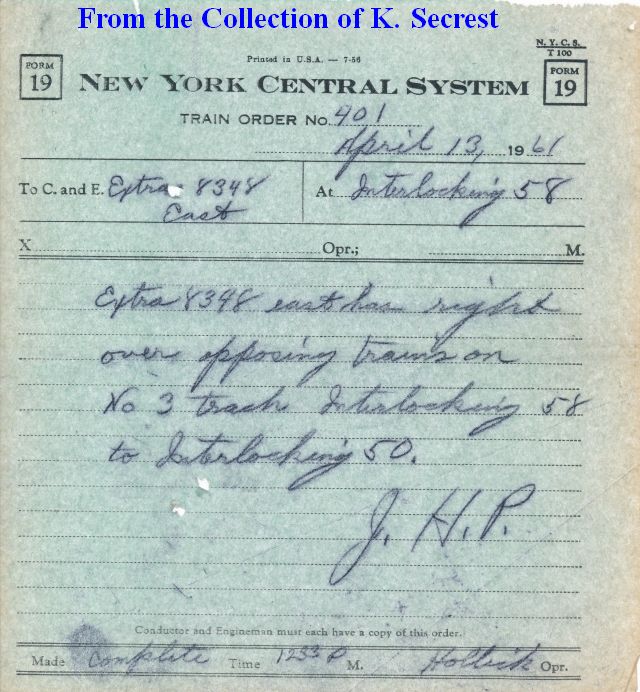 From the Collection of K. Secrest
N. Y. C. S.
T 100
Printed in U.S.A. — 7-56
FORM 19
NEW YORK CENTRAL SYSTEM
FORM 19
TRAIN ORDER No. 401
April 13, 1961
To C. and E. Extra 8348 East
At Interlocking 58
X Opr.; M.
Extra 8348 east has right
over opposing trains on
No 3 track Interlocking 58
to Interlocking 50.
J. H. P.
Conductor and Engineman must each have a copy of this order.
Made Complete Time 1233 P M. Opr.